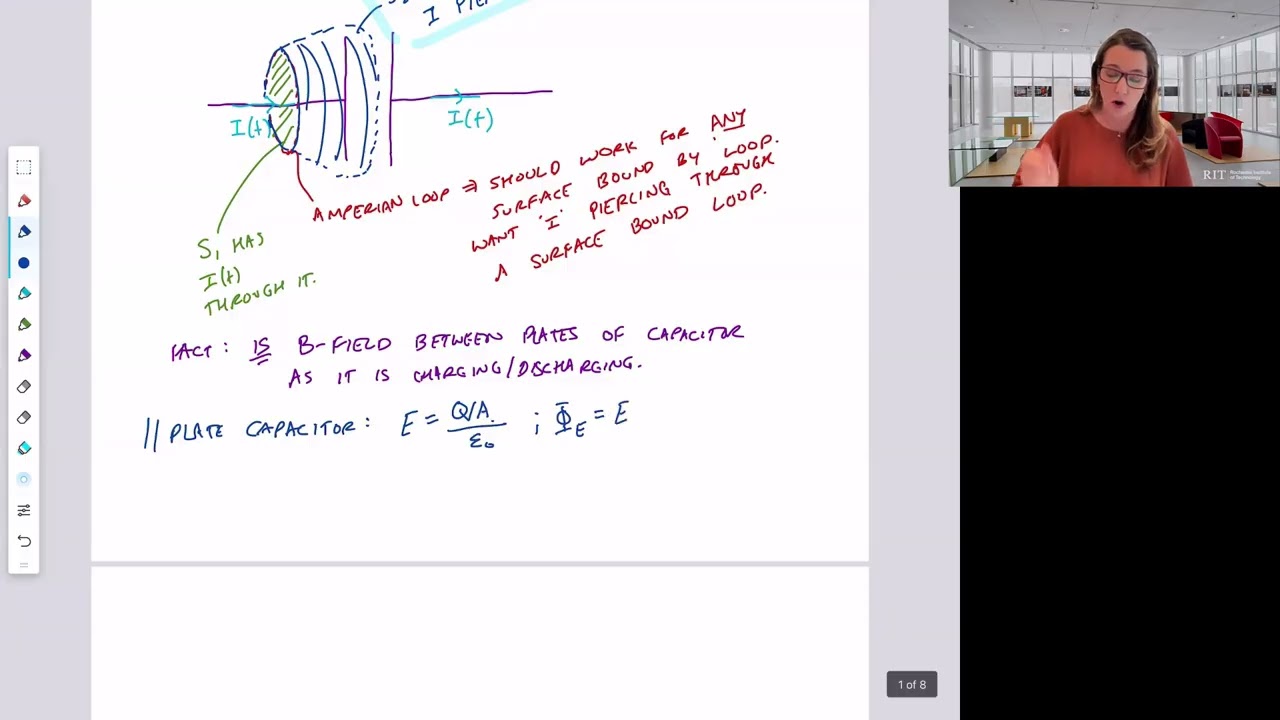 I
I(t)
I(t)
AMPERIAN LOOP ⇒ SHOULD WORK FOR ANY
SURFACE BOUND BY LOOP.
WANT 'I' PIERCING THROUGH
A SURFACE BOUND LOOP.
S₁ HAS
I(t)
THROUGH IT.
FACT: IS B-FIELD BETWEEN PLATES OF CAPACITOR
AS IT IS CHARGING/DISCHARGING.
// PLATE CAPACITOR: E = Q/A / ε₀ ; Φ_E = E
1 of 8
RIT Rochester Institute of Technology